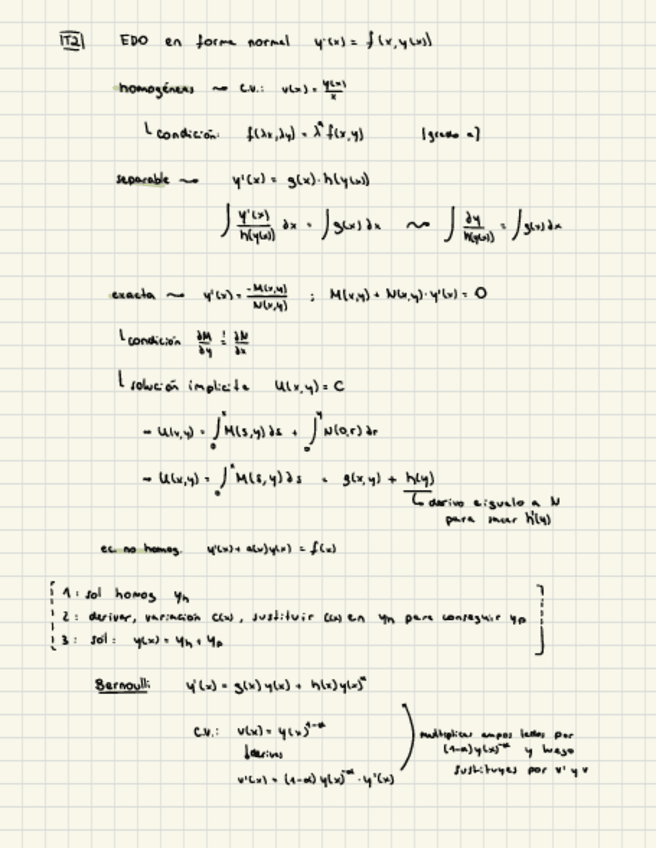 T2 EDO en forma normal y'(x) = f(x,y(x))
homogéneas ~ c.v.: v(x) = y(x)/x
condición: f(λx,λy) = λ^α f(x,y) [grado α]
separable ~ y'(x) = g(x)·h(y(x))
∫ y'(x)/h(y(x)) dx = ∫ g(x) dx ~ ∫ dy/h(y(x)) = ∫ g(x) dx
exacta ~ y'(x) = -M(x,y)/N(x,y) ; M(x,y) + N(x,y)·y'(x) = 0
condición ∂M/∂y =! ∂N/∂x
solución implícita U(x,y) = C
- U(x,y) = ∫₀ˣ M(s,y) ds + ∫₀ʸ N(0,r) dr
- U(x,y) = ∫₀ˣ M(s,y) ds = g(x,y) + h(y)
derivo e igualo a N
para sacar h'(y)
ec. no homog. y'(x) + a(x)y(x) = f(x)
1: sol homog yh
2: derivar, variación C(x), sustituir C(x) en yh para conseguir yp
3: sol: y(x) = yh + yp
Bernoulli: y'(x) = g(x)y(x) + h(x)y(x)^α
c.v.: v(x) = y(x)^(1-α)
derivas
v'(x) = (1-α) y(x)^-α · y'(x)
multiplicas ambos lados por
(1-α)y(x)^-α y luego
sustituyes por v' y v